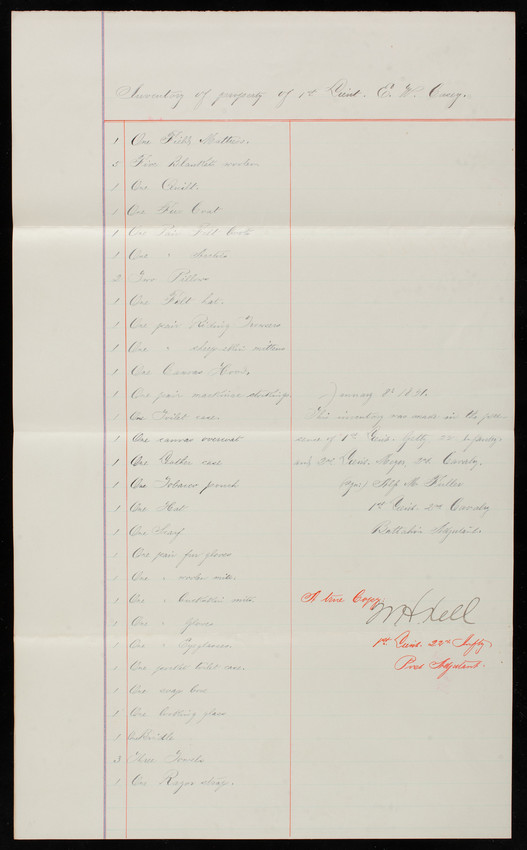 Inventory of property of 1st Lieut. E. W. Casey.
1 One Field Mattress.
5 Five blankets woolen
1 One Quilt.
1 One Fur Coat
1 One Pair Felt boots
1 One " 
2 Two Pillows
1 One Felt hat.
1 One pair Riding Trousers
1 One " sheep skin mittens
1 One Canvas Hood.
1 One pair stockings
1 One Toilet case.
1 One canvas overcoat
1 One Leather case
1 One Tobacco pouch
1 One Hat
1 One Scarf
1 One pair fur gloves
1 One " woolen mitts.
1 One " buckskin mitts.
1 One " Gloves
1 One " Eyeglasses
1 One pocket toilet case.
1 One soap box
1 One looking glass
1
3 Three Towels
1 One Razor strop.
January 8th 1891.
This inventory was made in the pre-
sence of 1st Lieut. Getty 22 Infantry
and 2nd Lieut. 2nd Cavalry.
(Sgd.) M. Fuller
1st Lieut. 2nd Cavalry
Battalion Adjutant.
A true Copy.
1st Lieut. 22nd Infty
Post Adjutant.